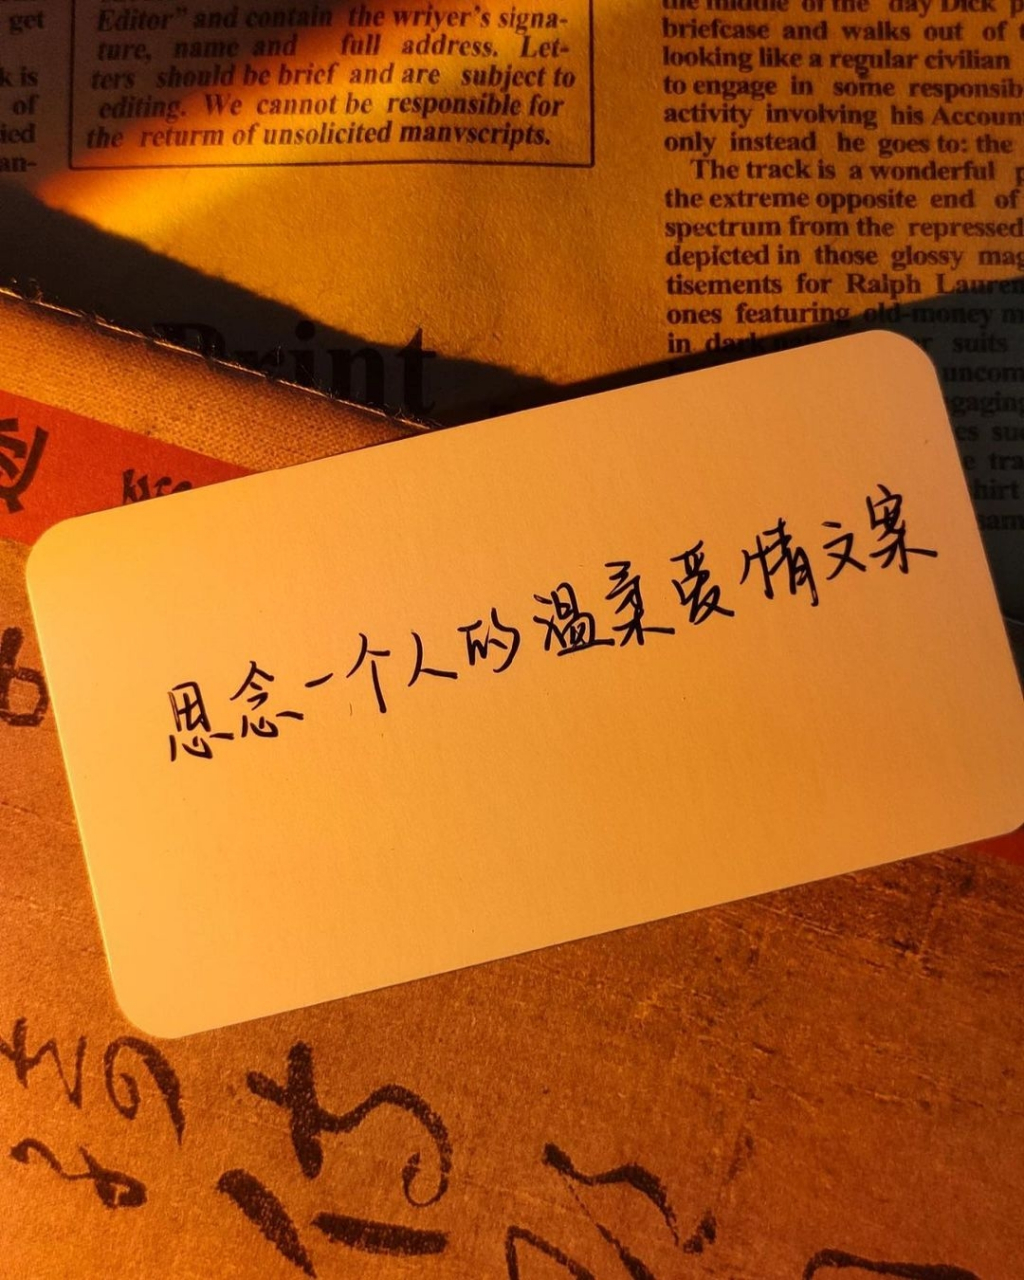 get
Editor” and contain the wriyer’s signa-
ture, name and full address. Let-
ters should be brief and are subject to
editing. We cannot be responsible for
the returm of unsolicited manvscripts.
k is
of
ied
an-
the middle of the day Dick p
briefcase and walks out of t
looking like a regular civilian
to engage in some responsib
activity involving his Accoun
only instead he goes to: the
The track is a wonderful p
the extreme opposite end of
spectrum from the repressed
depicted in those glossy mag
tisements for Ralph Lauren
ones featuring old-money m
in dark suits
uncom
gaging
es suc
e tra
hirt
sam
Print
思念一个人的温柔爱情文案